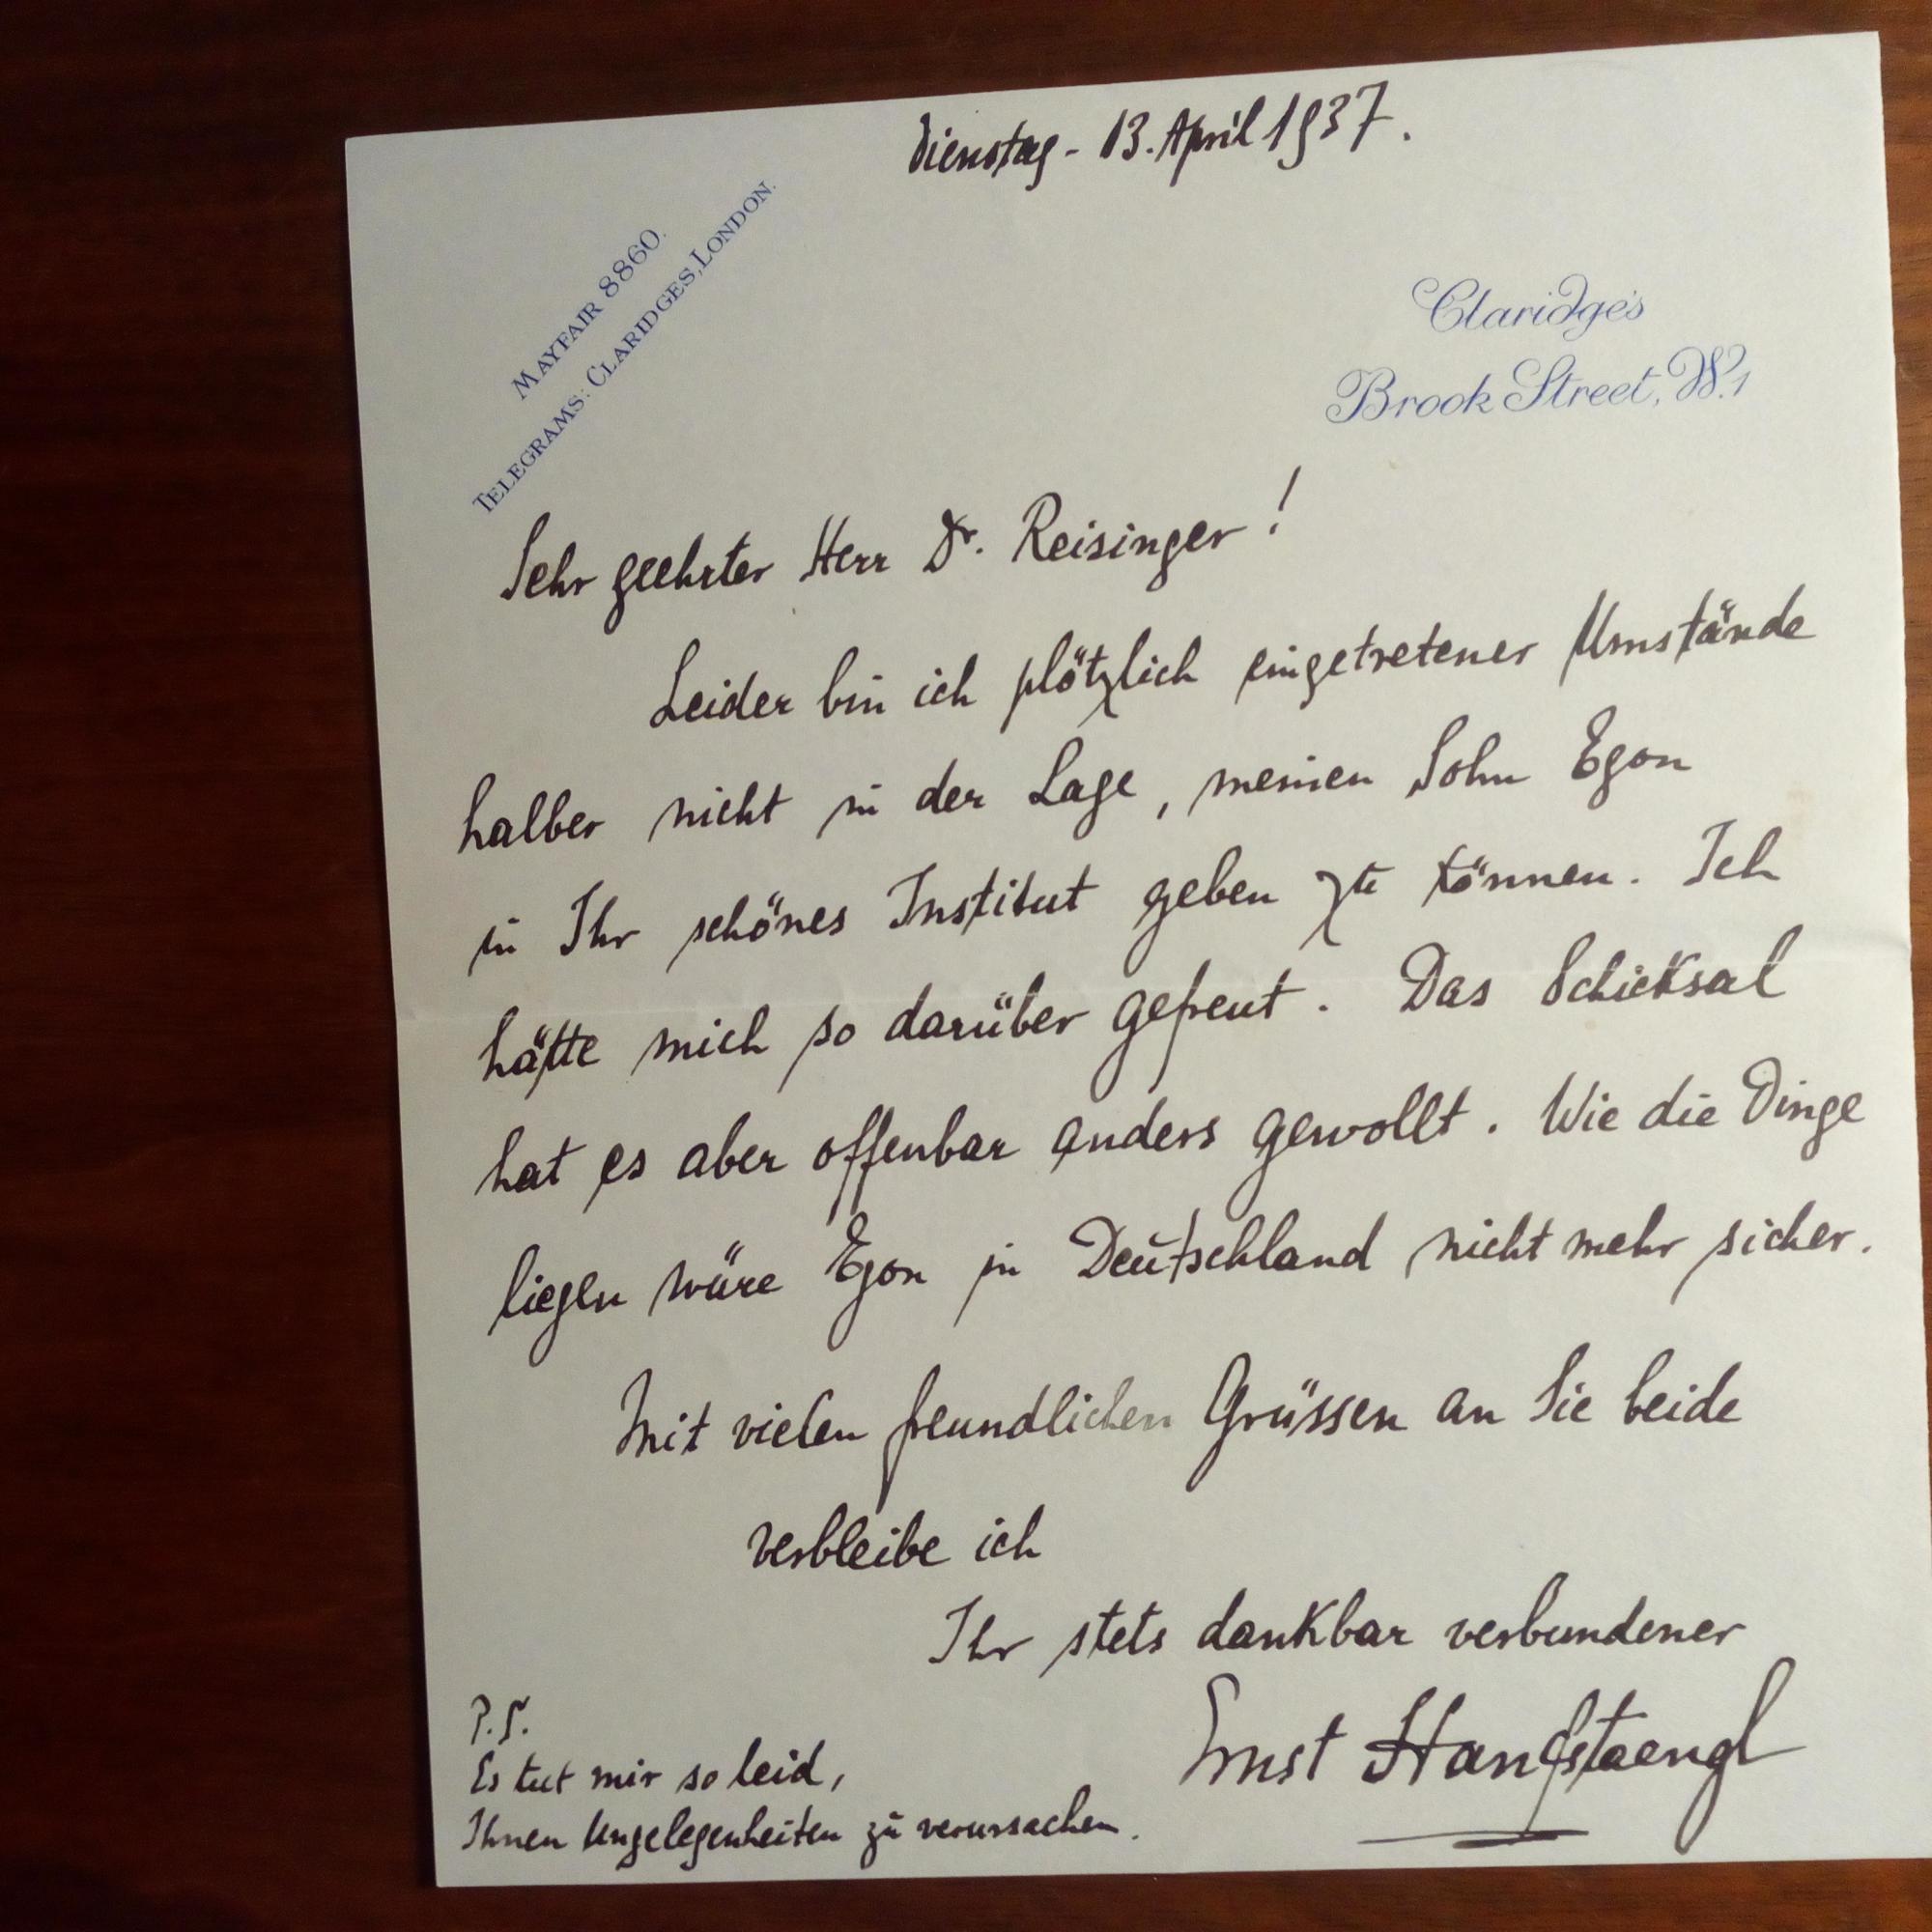 Dienstag - 13. April 1937.
MAYFAIR 8860.
TELEGRAMS: CLARIDGES, LONDON.
Claridge's
Brook Street, W.1
Sehr geehrter Herr Dr. Reisinger!
Leider bin ich plötzlich eingetretener Umstände
halber nicht in der Lage, meinen Sohn Egon
in Ihr schönes Institut geben zu können. Ich
hätte mich so darüber gefreut. Das Schicksal
hat es aber offenbar anders gewollt. Wie die Dinge
liegen wäre Egon in Deutschland nicht mehr sicher.
Mit vielen freundlichen Grüssen an Sie beide
verbleibe ich
Ihr stets dankbar verbundener
Ernst Hanfstaengl
P.S.
Es tut mir so leid,
Ihnen Ungelegenheiten zu verursachen.